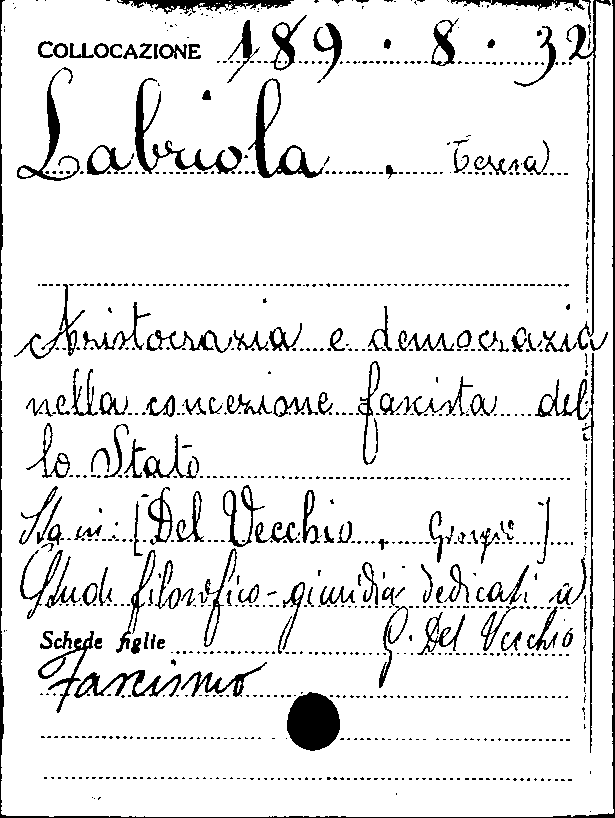 COLLOCAZIONE 189 . 8 . 32
Labriola, Teresa
Aristocrazia e democrazia
nella concezione fascista del
lo Stato
Sta in: [Del Vecchio, Giorgio]
Studi filosofico-giuridici dedicati a
G. Del Vecchio
Schede figlie
Fascismo